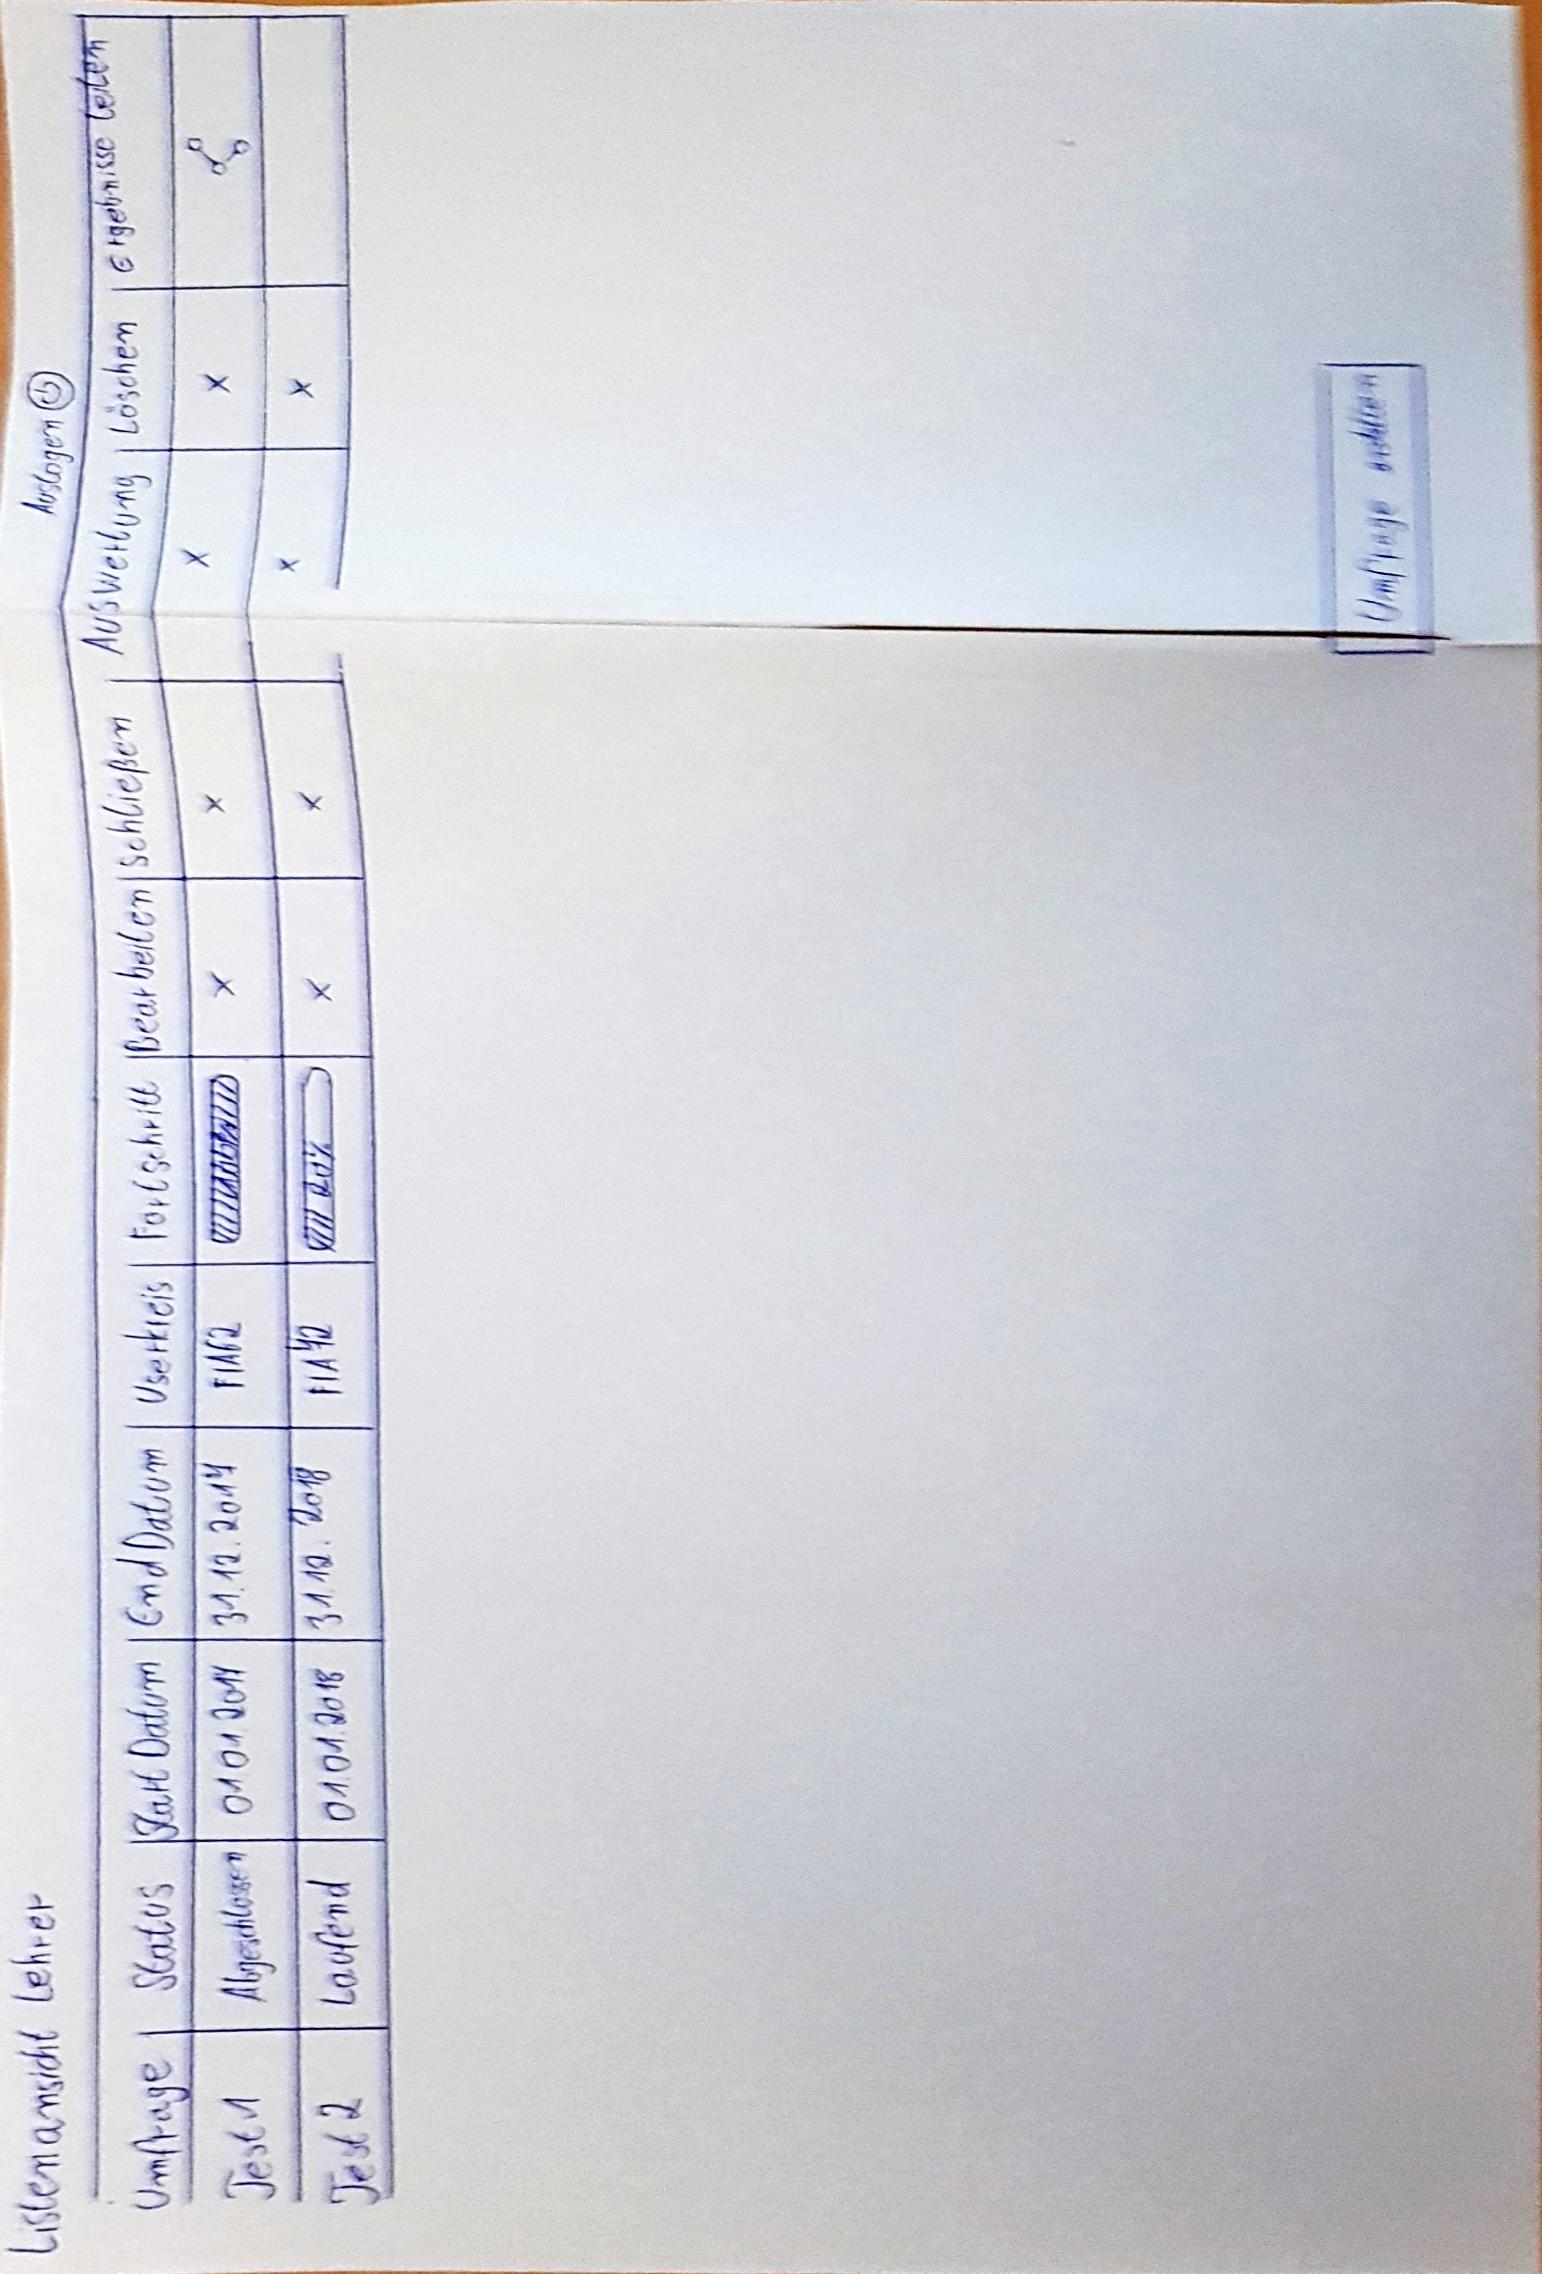 Listenansicht Lehrer
Auslogen
Umfrage Status Start Datum End Datum Userkreis Fortschritt Bearbeiten Schließen Auswertung Löschen Ergebnisse teilen
Test 1 Abgeschlossen 01 01 2017 31.12.2017 FIA62 x x x x
Test 2 Laufend 01.01.2018 31.12.2018 FIA42 20% x x x x
Umfrage erstellen